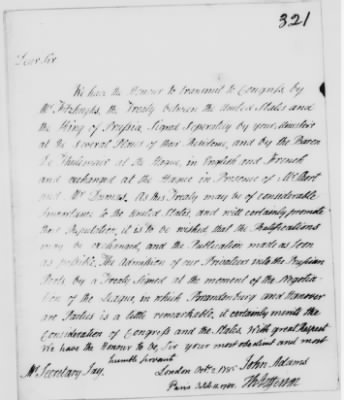 321
Dear Sir
We have the Honour to transmit to Congress, by
Mr Fitzhughs, the Treaty between the United States and
the King of Prussia, Signed Seperately by your Ministers
at the Several Places of their Residence, and by the Baron
De Thulemeir at the Hague, in English and French
and exchanged at the Hague in Presence of Mr Short
and Mr Dumas. As this Treaty may be of considerable
Importance to the United States, and will certainly promote
their Reputation, it is to be wished that the Ratifications
may be exchanged, and the Publication made as soon
as possible. The Admission of our Privateers into the Prussian
Ports, by a Treaty Signed at the moment of the Negotia-
tion of the League, in which Brandenburg and Hanover
are Parties is a little remarkable, it certainly merits the
Consideration of Congress and the States. With great Respect
We have the Honour to be, Sir your most obedient and most
humble Servant
Mr Secretary Jay. London Octr 2. 1785 John Adams
Paris 1785. Th: Jefferson